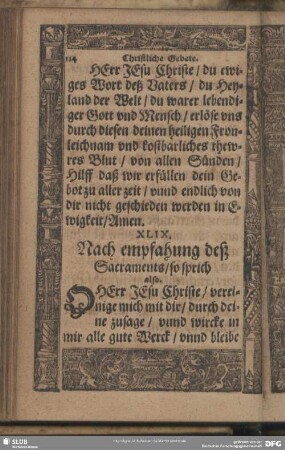 114
Christliche Gebete.
HErr JEsu Christe / du ewi-
ges Wort deß Vaters / du Hey-
land der Welt / du warer lebendi-
ger Gott vnd Mensch / erlöse vns
durch diesen deinen heiligen Fron-
leichnam vnd kostbarliches thew-
res Blut / von allen Sünden /
Hilff daß wir erfüllen dein Ge-
bot zu aller zeit / vnnd endlich von
dir nicht geschieden werden in E-
wigkeit / Amen.
XLIX.
Nach empfahung deß
Sacraments / so sprich
also.
O HErr JEsu Christe / verei-
nige mich mit dir / durch dei-
ne zusage / vnnd wircke in
mir alle gute Werck / vnnd bleibe
SLUB
DFG